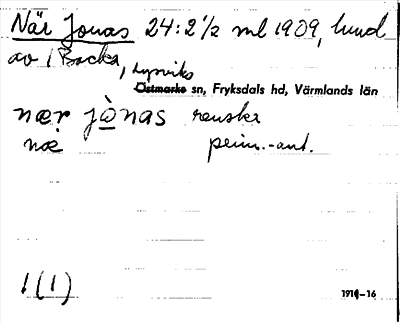 När Jonas 24:2 1/2 ml 1909, lund
av i Backa, Lysviks
Östmarks sn, Fryksdals hd, Värmlands län
nær jònas
næ
1(1)
1911-16